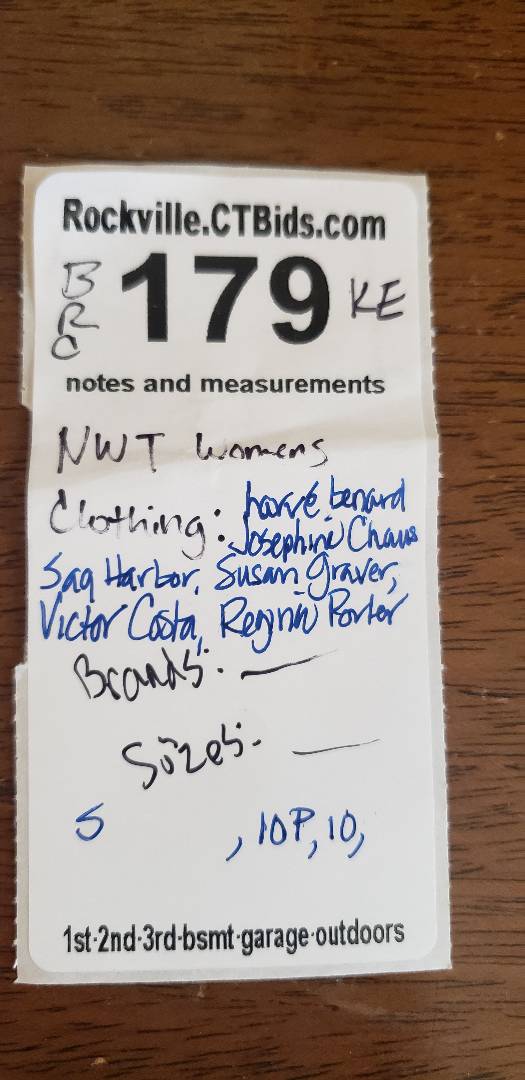 Rockville.CTBids.com
BRC 179 KE
notes and measurements
NWT Womens
Clothing: harvé benard
Josephine Chaus
Sag Harbor, Susan Graver,
Victor Costa, Regina Porter
Brands: —
Sizes: —
S , 10P, 10,
1st-2nd-3rd-bsmt-garage-outdoors